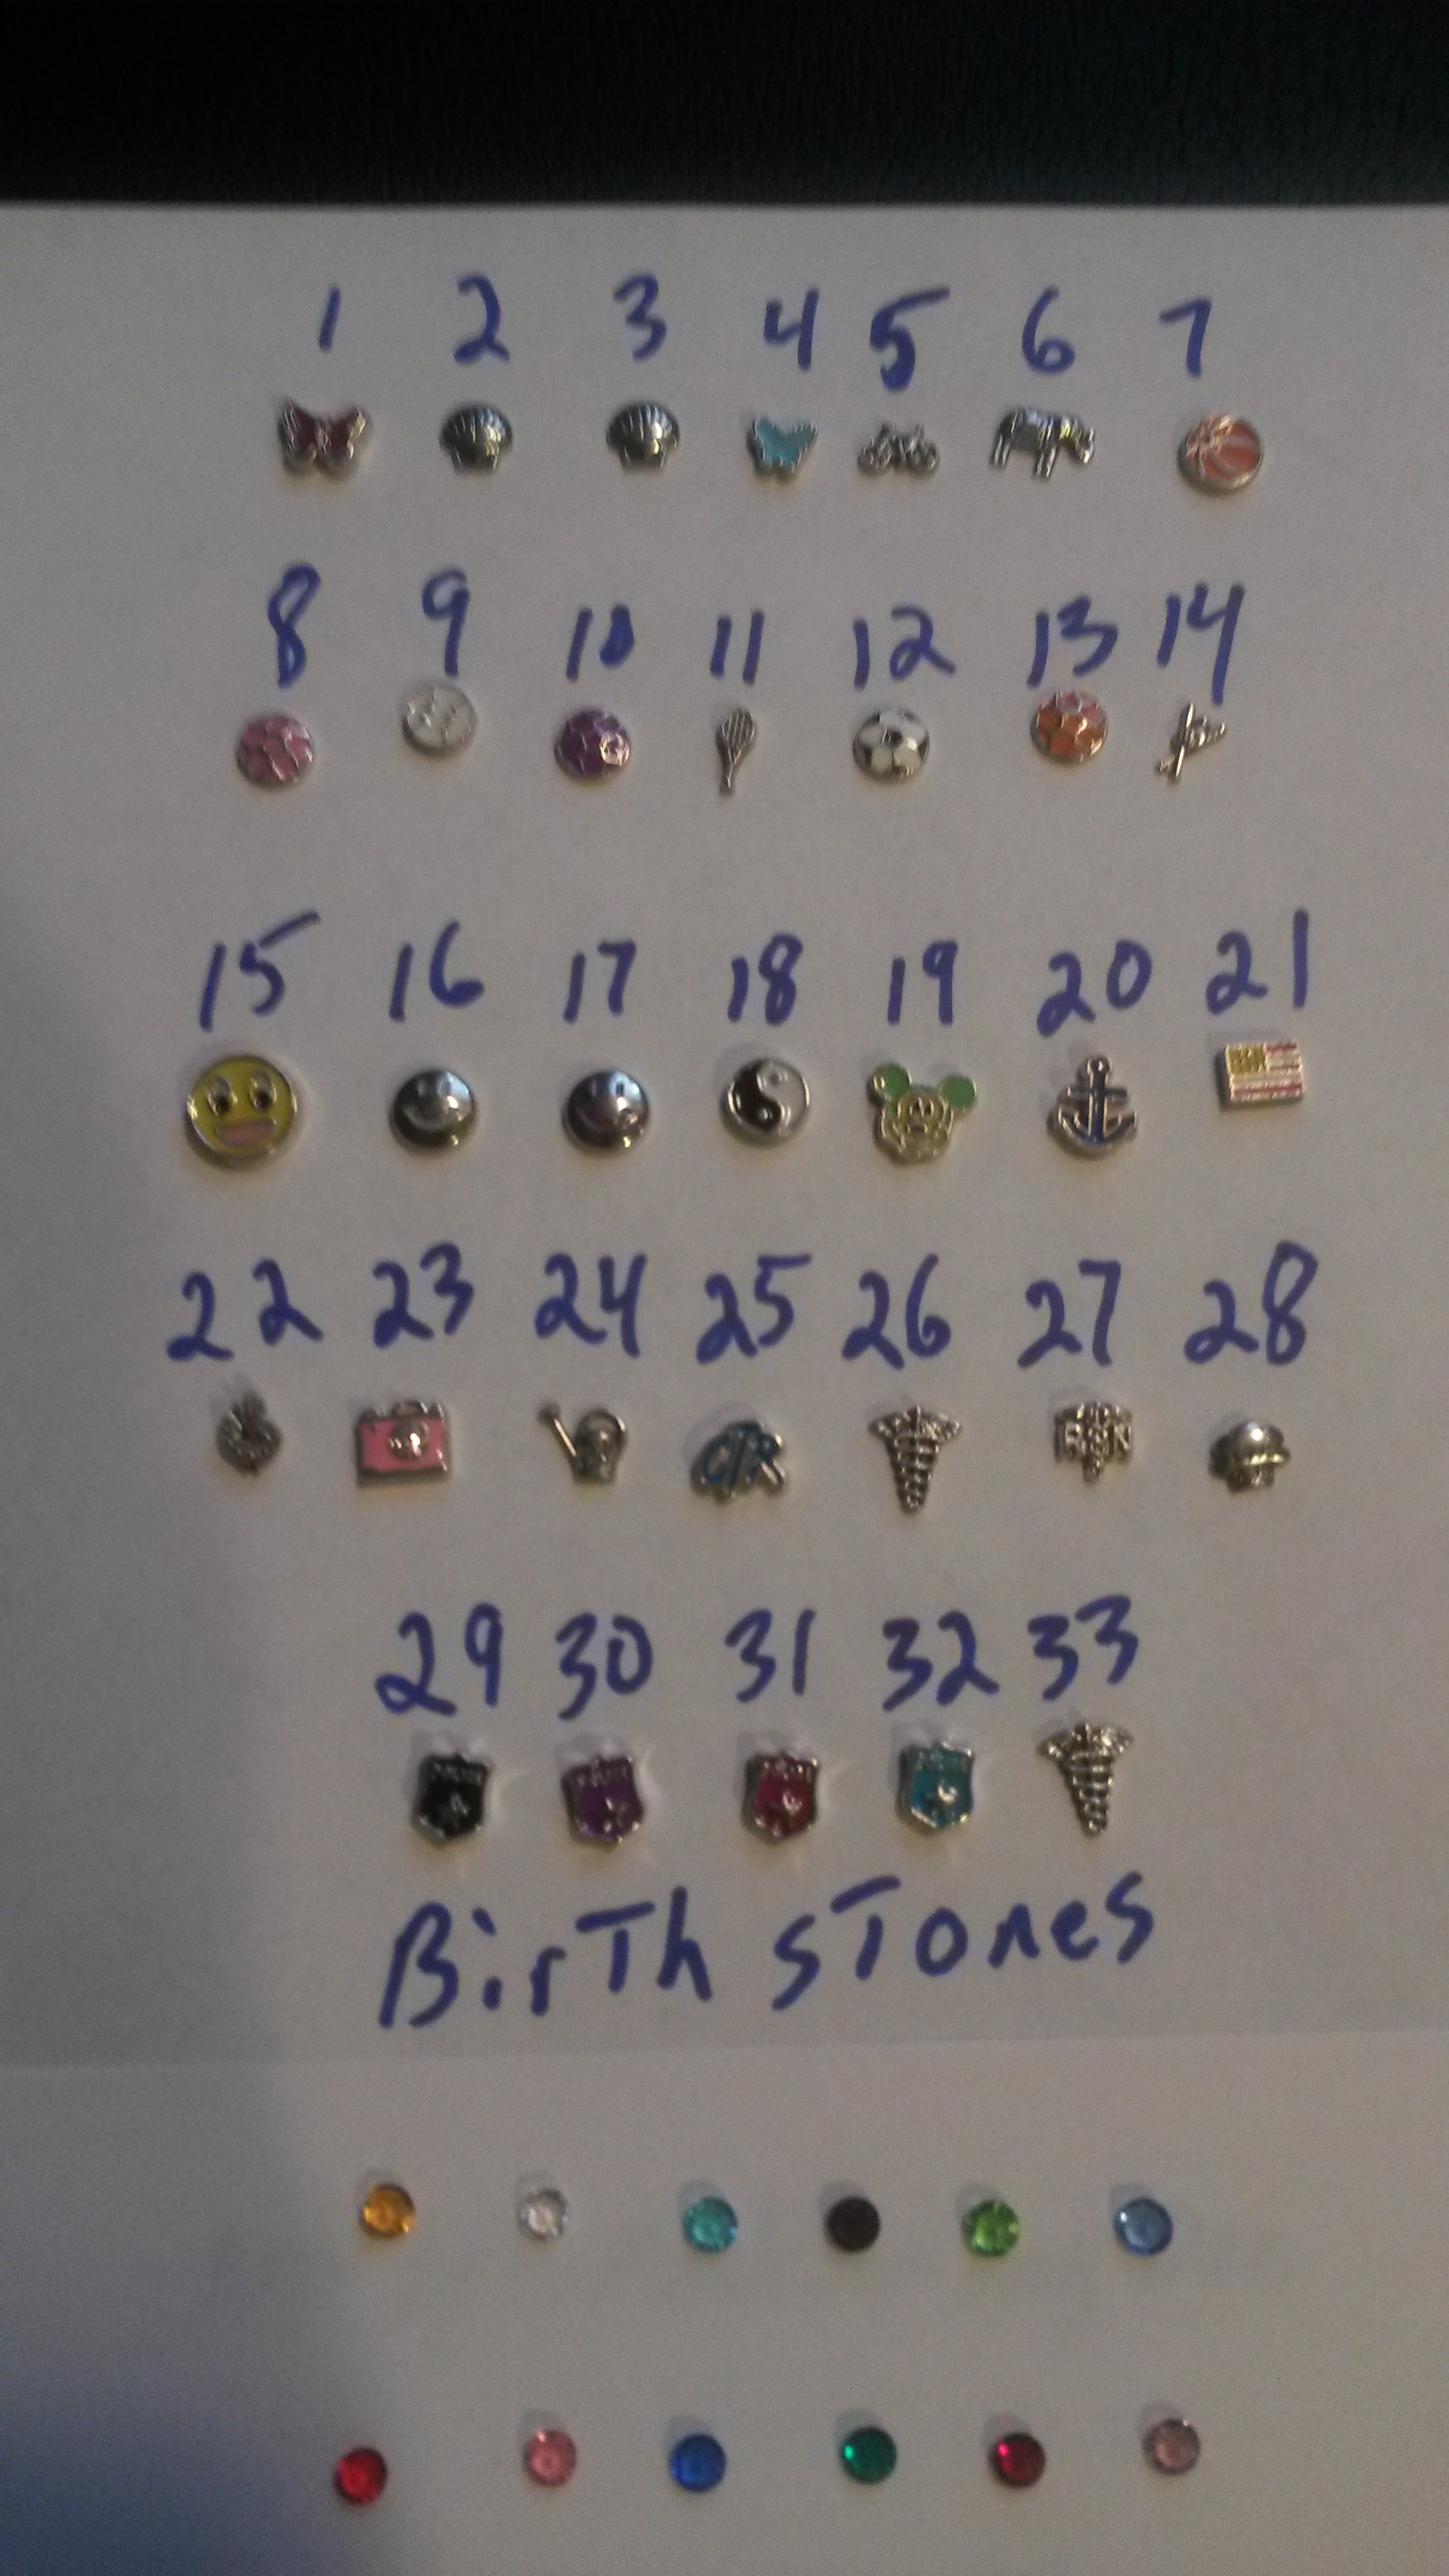 1 2 3 4 5 6 7
8 9 10 11 12 13 14
15 16 17 18 19 20 21
22 23 24 25 26 27 28
CTR RN
29 30 31 32 33
POLICE POLICE POLICE POLICE
BirTh sTones